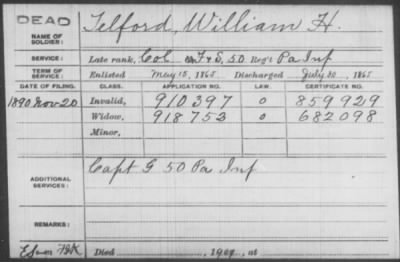 DEAD
NAME OF SOLDIER: Telford, William H.
SERVICE: Late rank, Col F & S, 50 Reg't Pa Inf
TERM OF SERVICE: Enlisted May 15, 1865 Discharged July 30, 1865
DATE OF FILING. CLASS. APPLICATION NO. LAW. CERTIFICATE NO.
1890 Nov 20 Invalid, 910397 o 859929
Widow, 918752 o 682098
Minor,
ADDITIONAL SERVICES: Capt G 50 Pa Inf
REMARKS:
Died , 190 , at